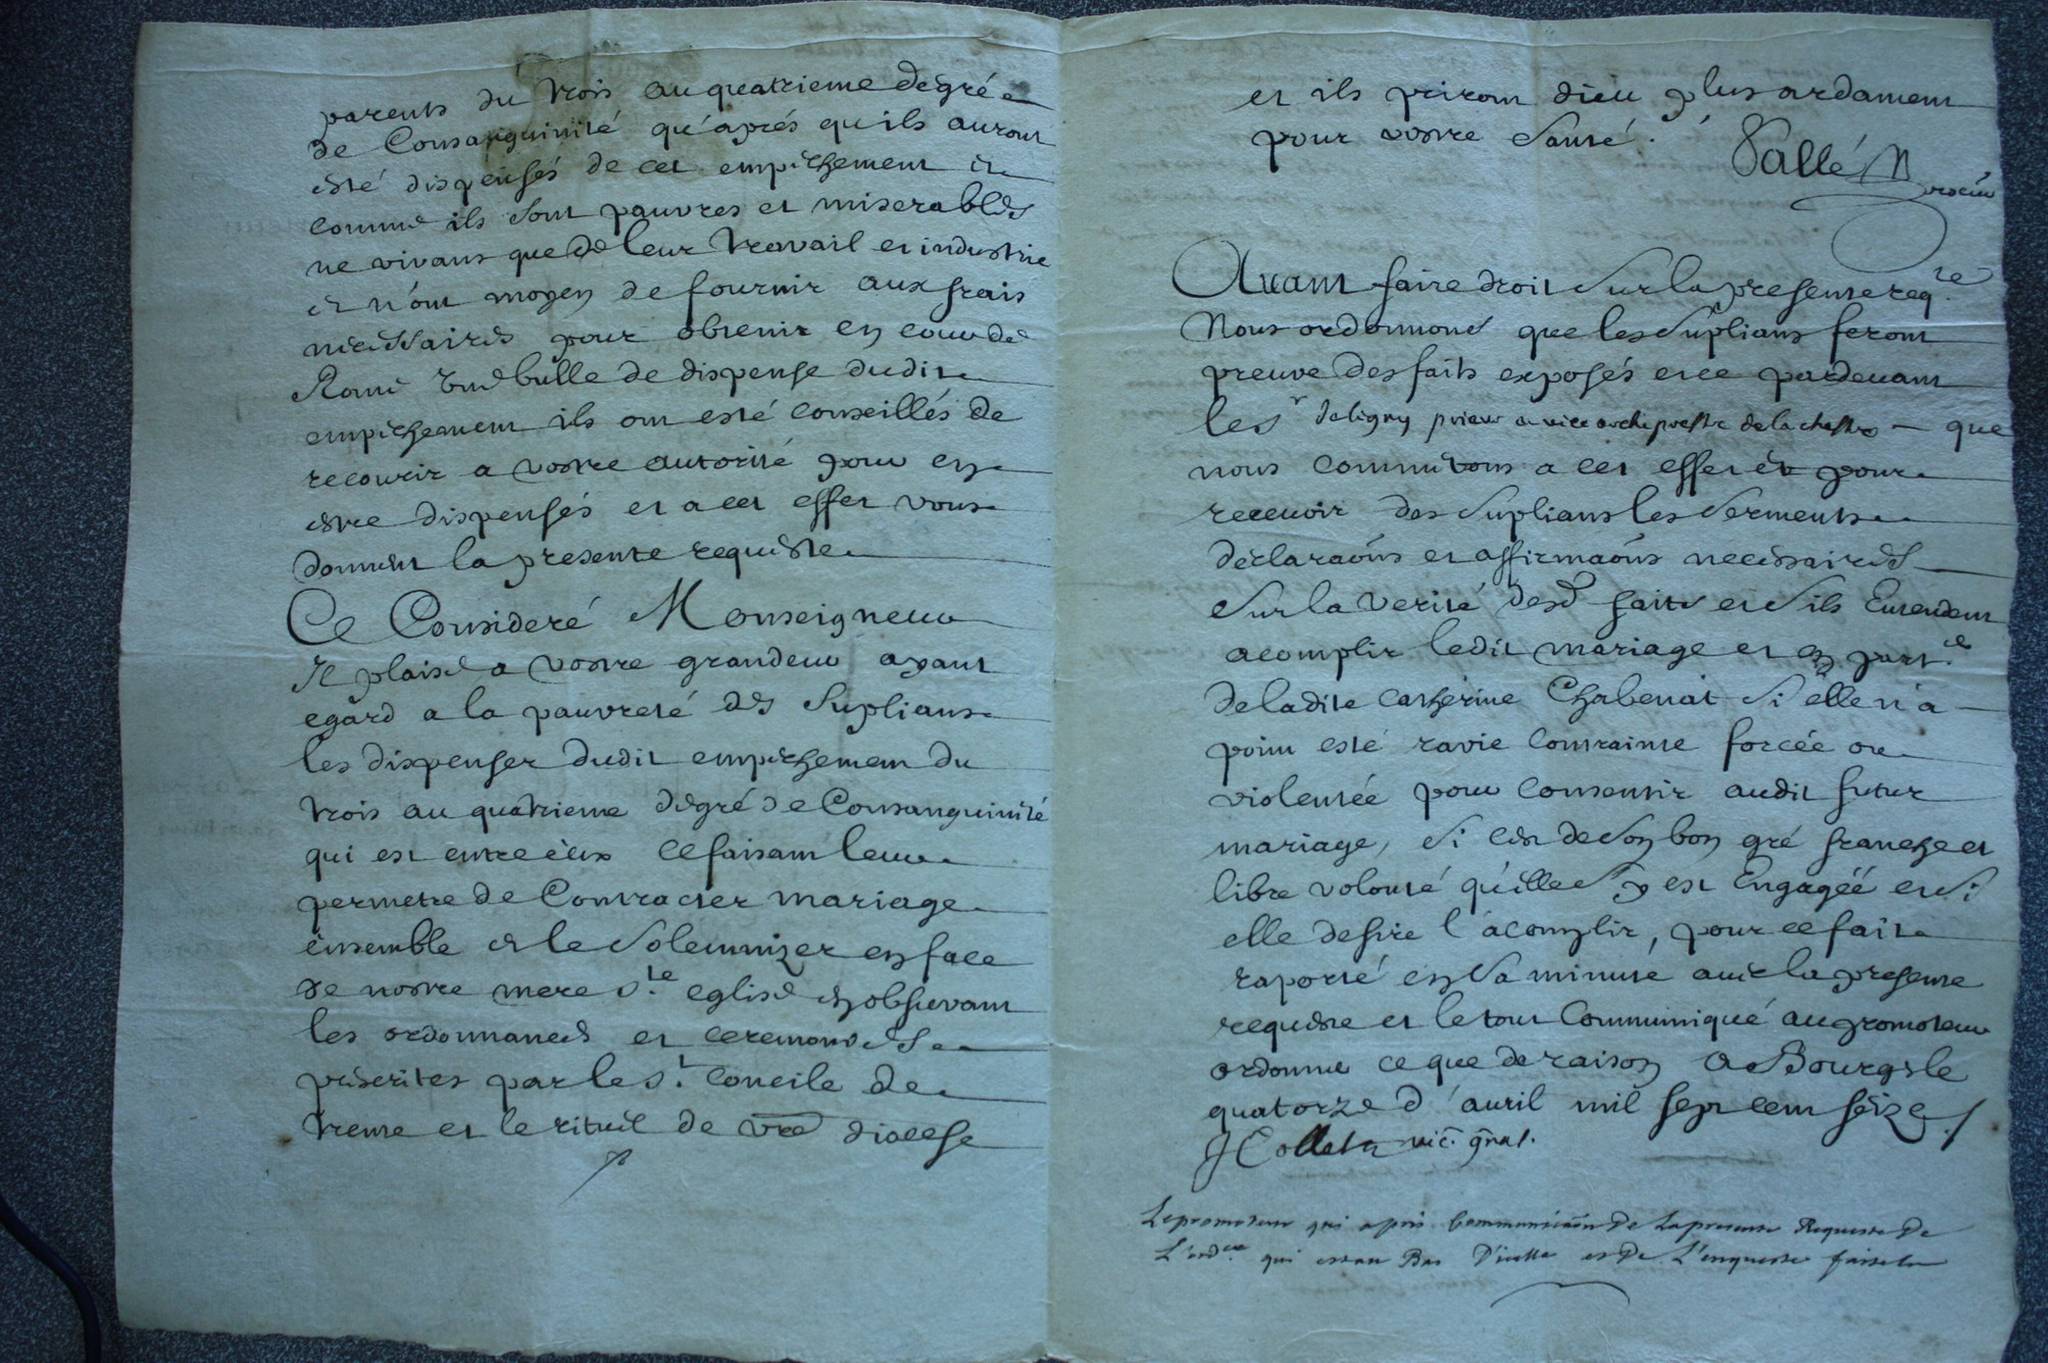 parents du trois au quatrieme degré
de Consanguinité qu'aprés qu'ils auront
esté dispensés de cet empeschement et
comme ils sont pauvres et miserables
ne vivans que de leur travail et industrie
et n'ont moyen de fournir aux frais
necessaires pour obtenir en cour de
Rome une bulle de dispense dudit
empeschement ils ont esté conseillés de
recourir a vostre autorité pour en
estre dispensés et a cet effet vous
donnent la presente requeste
Ce Consideré Monseigneur
Il plaise a vostre grandeur ayant
egard a la pauvreté des suplians
les dispenser dudit empeschement du
trois au quatrieme degré de Consanguinité
qui est entre eux ce faisant leur
permetre de Contracter mariage
ensemble et le solemnizer en face
de nostre mere s.te eglise en observant
les ordonnances et ceremonies
prescrites par le s.t concile de
trente et le rituel de vre diocese
et ils priront dieu plus ardament
pour vostre santé.
Vallé
Avant faire droit sur la presente req.te
Nous ordonnons que les suplians feront
preuve des faits exposés et ce pardevant
le s.r deligny prieur et vice archiprestre de la chastre que
nous commetons a cet effet et pour
recevoir des suplians les serments
declaraons et affirmaons necessaires
sur la verité desd. faits et s'ils entendent
acomplir ledit mariage et en part.er
de ladite catherine Chabenat si elle n'a
point esté ravie contrainte forcée ou
violentée pour consentir audit futur
mariage, si c'est de son bon gré franche et
libre volonté qu'elle s'y est Engagée et si
elle desire l'acomplir, pour ce fait
raporté en sa minute avec la presente
requeste et le tout Communiqué au promoteur
ordonné ce que de raison A Bourges le
quatorze d'avril mil sept cent seize
Collet vic. gnal.
Le promoteur qui a pris communicaon de la presente Requeste de
L'ord.ce qui est au Bas D'icelle et de L'enqueste faitte